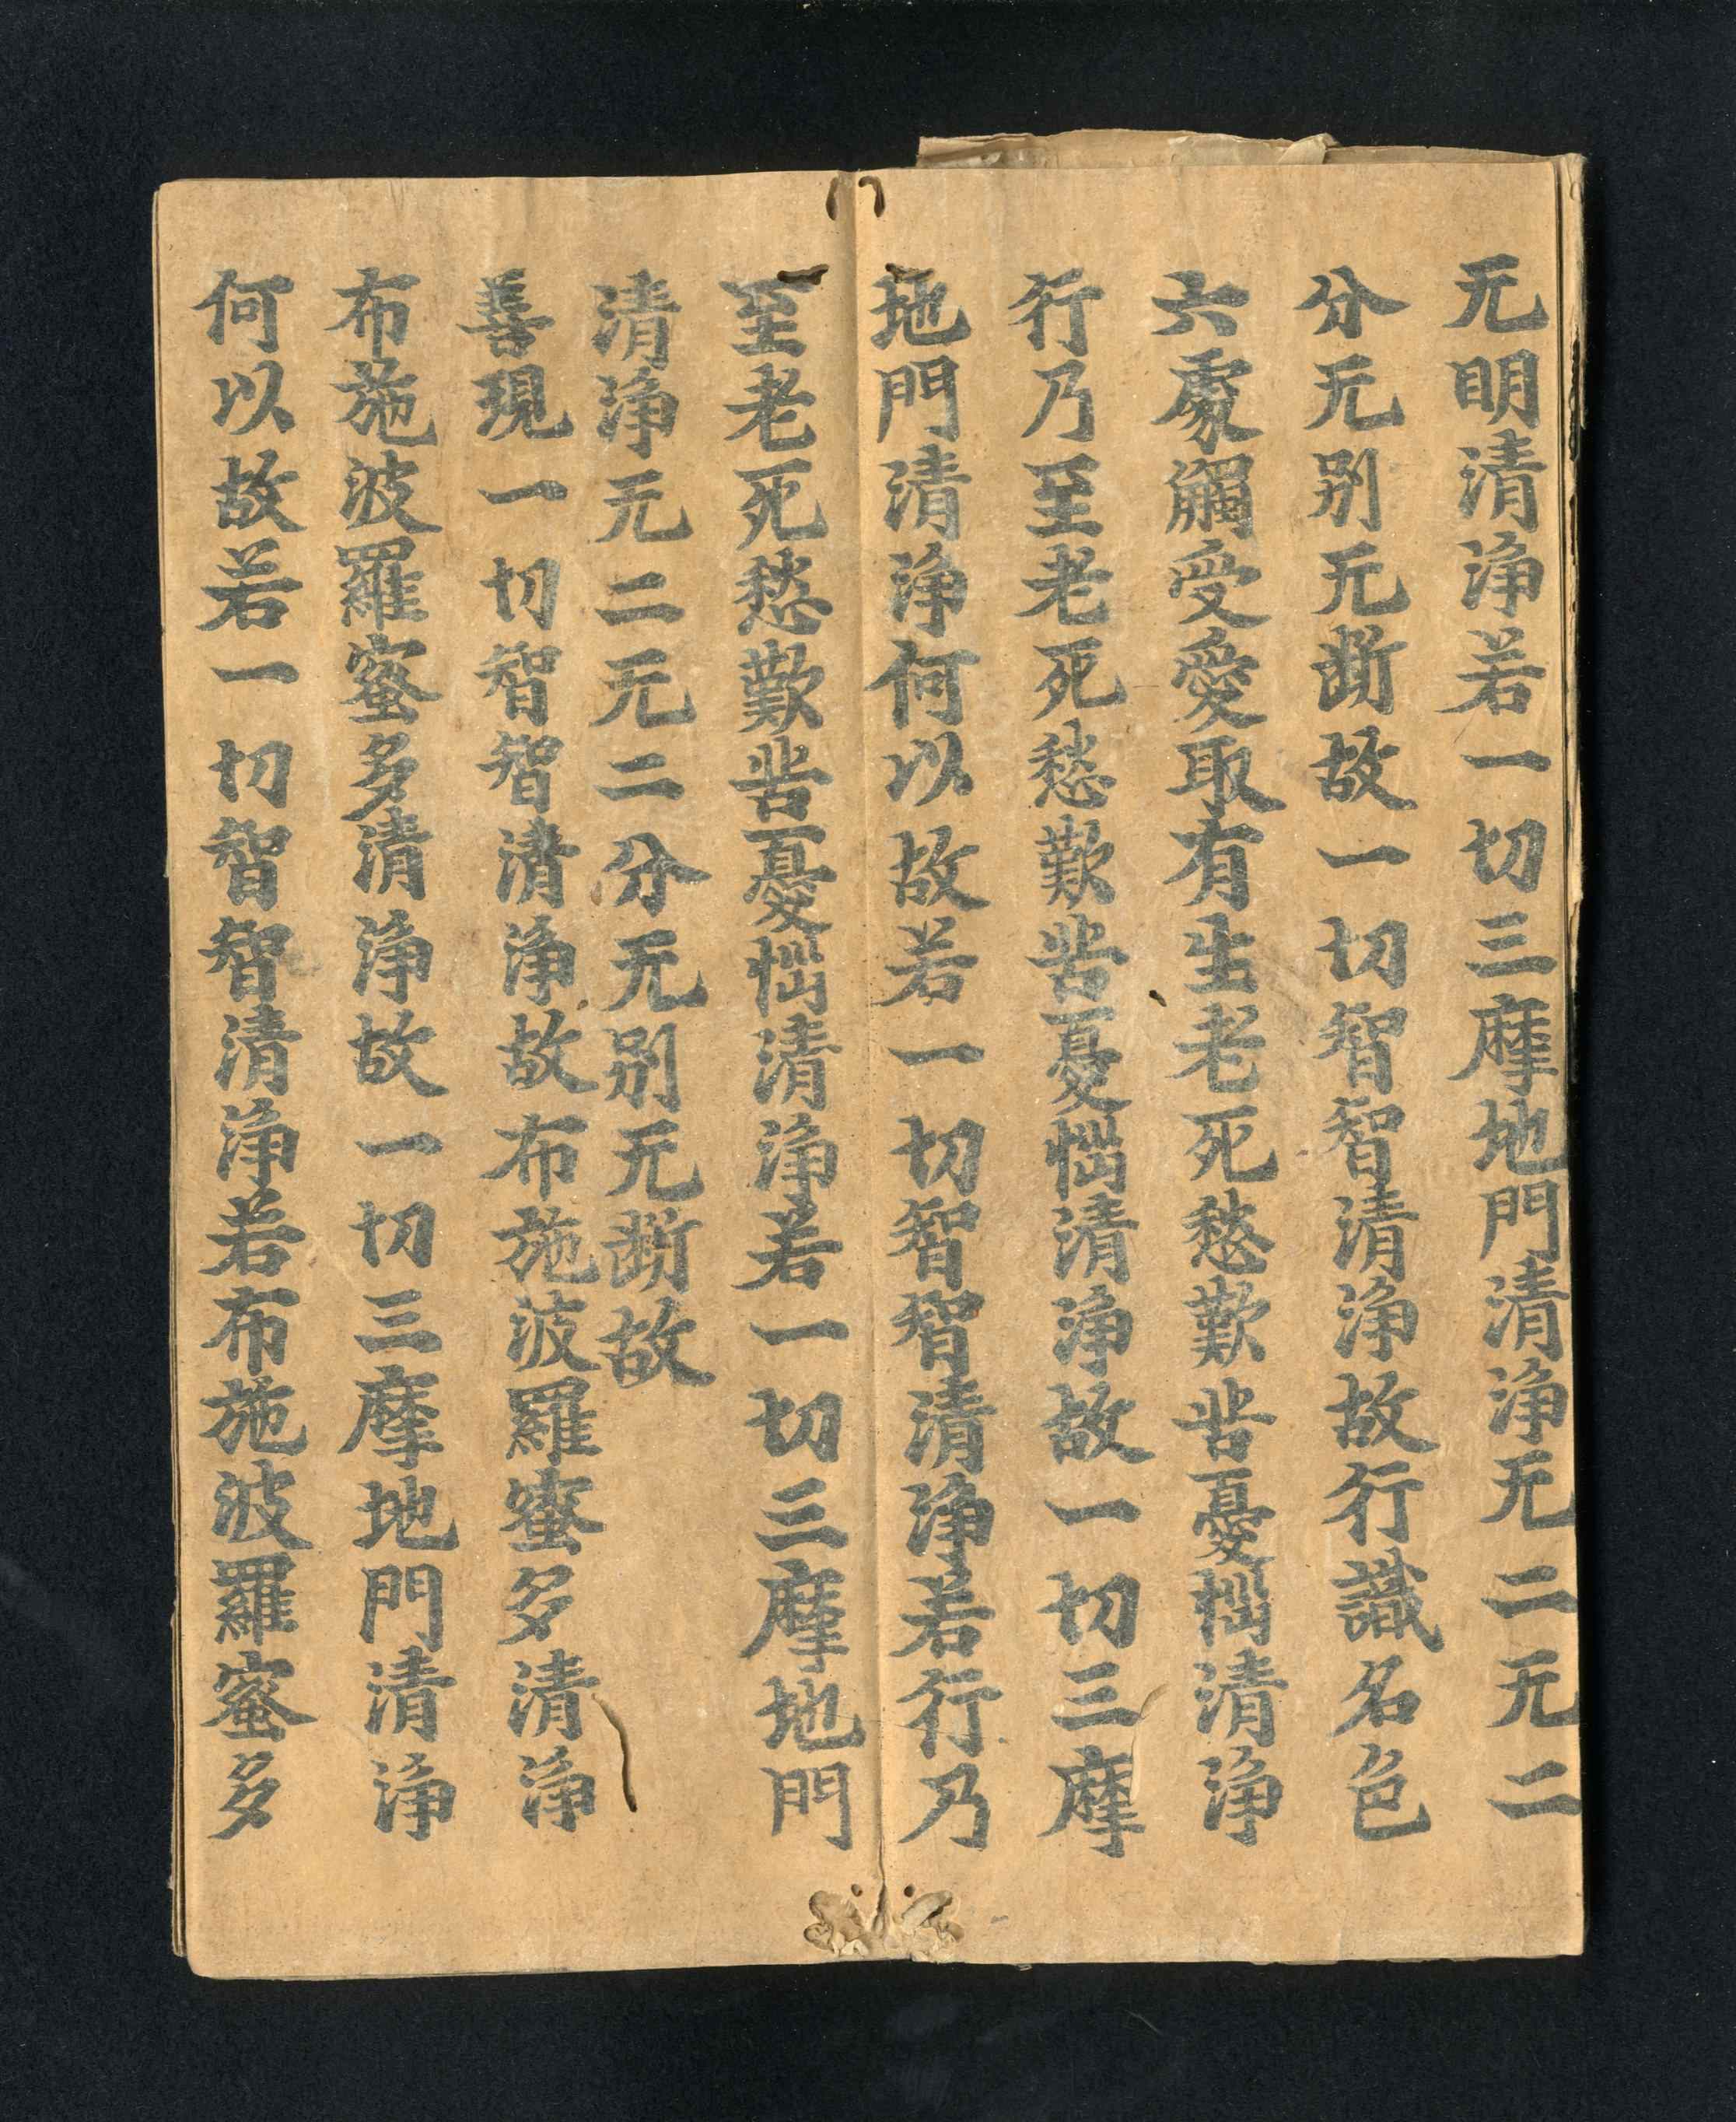 无明清淨若一切三摩地門清淨无二无二
分无别无斷故一切智智清淨故行識名色
六處觸受愛取有生老死愁歎苦憂惱清淨
行乃至老死愁歎苦憂惱清淨故一切三摩
地門清淨何以故若一切智智清淨若行乃
至老死愁歎苦憂惱清淨若一切三摩地門
清淨无二无二分无别无斷故
善現一切智智清淨故布施波羅蜜多清淨
布施波羅蜜多清淨故一切三摩地門清淨
何以故若一切智智清淨若布施波羅蜜多